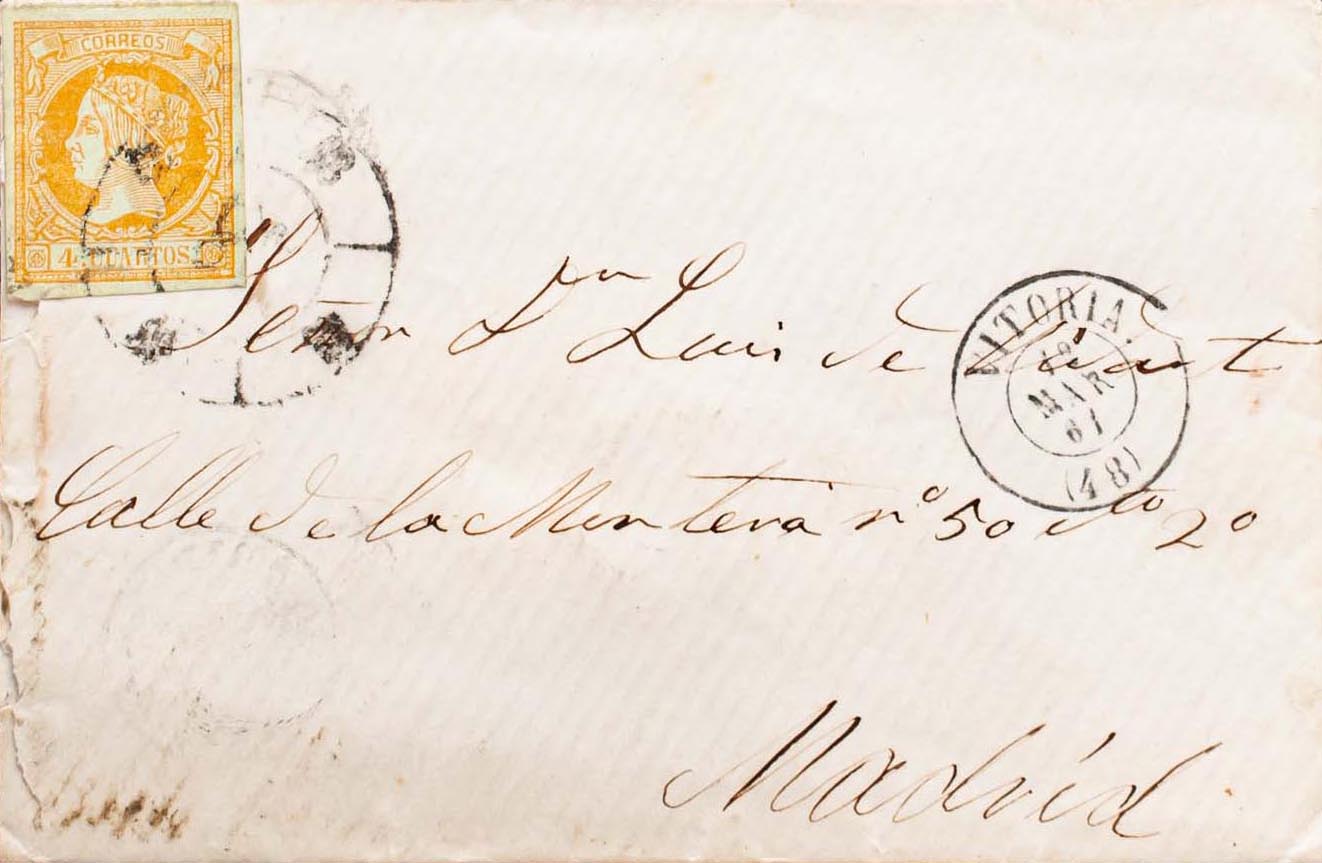 CORREOS
4 CUARTOS
Señor Dn Luis de Vidart
VITORIA.
12
MAR
61
(48)
Calle de la Montera nº 50 cto 2º
Madrid